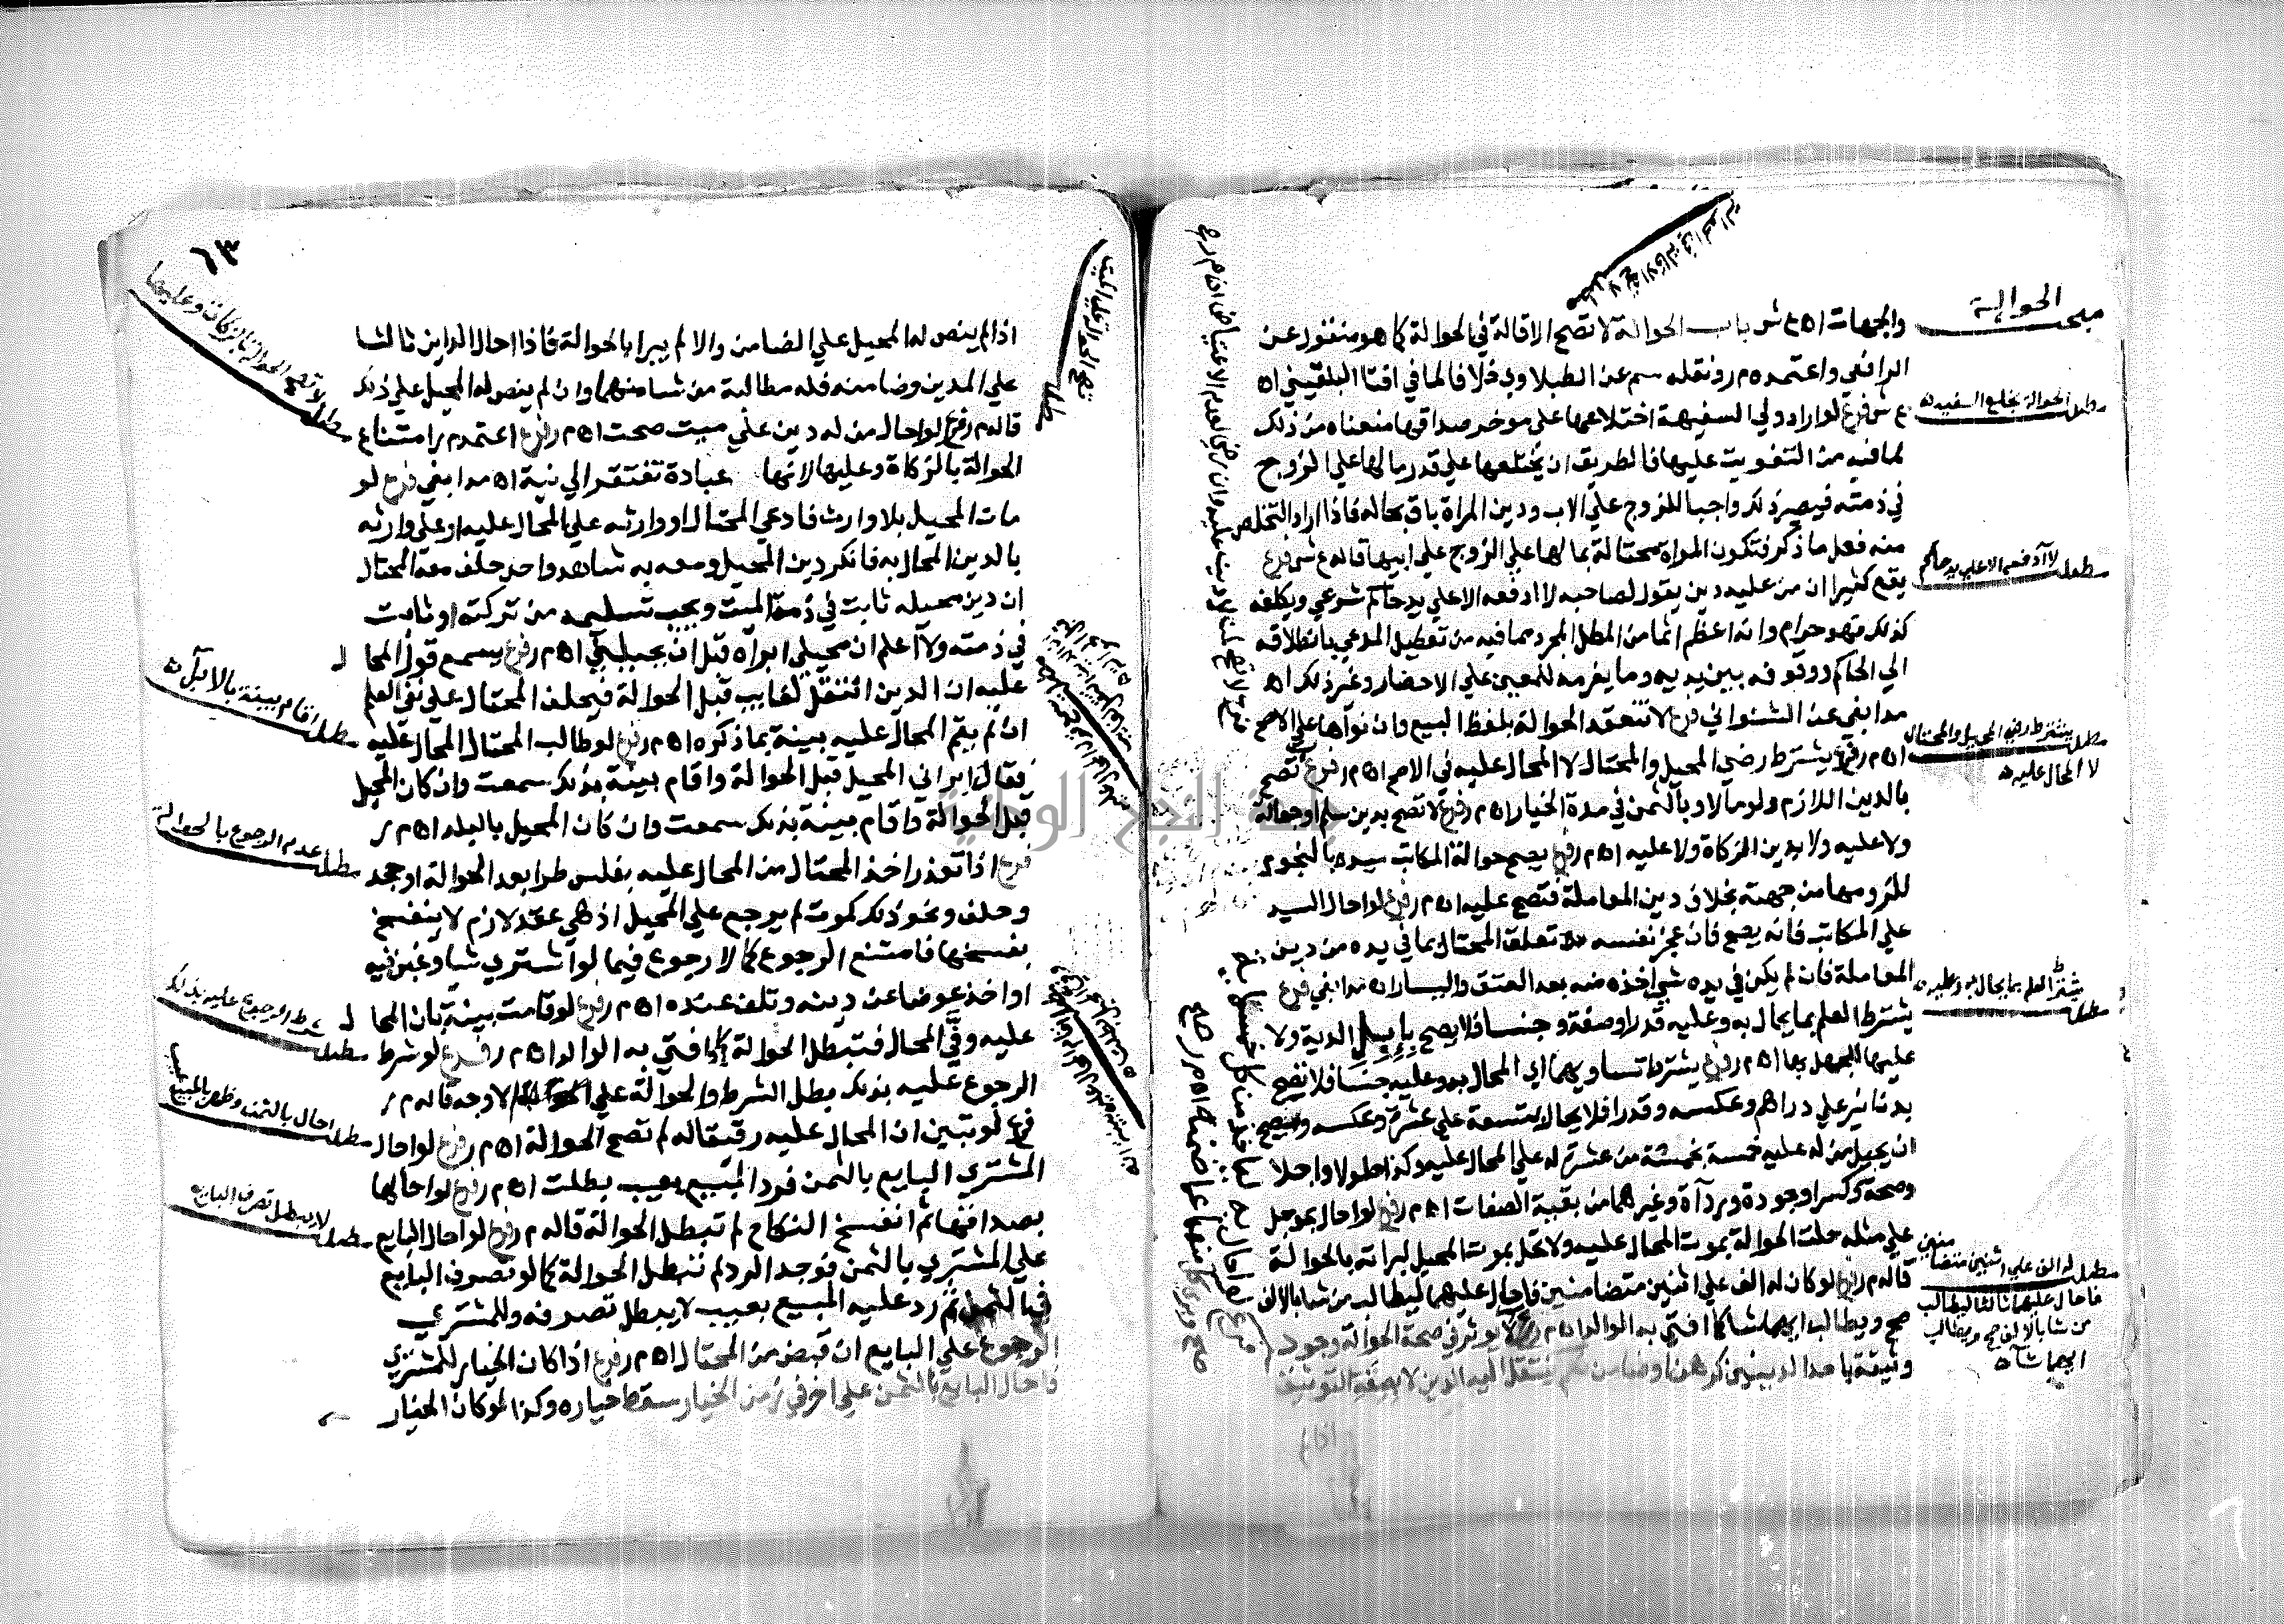 مبحث الحوالة
والجهات اه ع ش باب الحوالة لا تصح الاقالة في الحوالة كما هو منقول عن
الرافعي واعتمده م ر ونقله سم عن الطبلاوي خلافا لما في افتا البلقيني اه
ع ش فرع لو اراد ولي السفيهة اختلاعها على موخر صداقها منعناه من ذلك
لما فيه من التفويت عليها فالطريق ان يختلعها علي قدر مالها علي الزوج
في ذمته فيصير ذلك واجبا للزوج علي الاب ودين المراة باق بحاله فاذا اراد التخلص
منه فعل ما ذكر فتكون المراة محتالة بمالها علي الزوج علي ابيها قاله ع ش فرع
يقع كثيرا ان من عليه دين يقول لصاحبه لا ادفعه الا علي يد حاكم شرعي ويكلفه
كذلك فهو حرام وانه اعظم اثما من المطل المجرد مما فيه من تعطيل المدعي بانطلاقه
الي الحاكم ووقوفه بين يديه وما يغرمه للمعين علي الاحضار وغير ذلك اه
مدابغي عن الشنواني فرع لا تنعقد الحوالة بلفظ البيع وان نواها علي الاصح
اه م ر فرع يشترط رضي المحيل والمحتال لا المحال عليه في الاصح اه م ر فرع تصح
بالدين اللازم ولو مآلا وبالثمن في مدة الخيار اه م ر فرع لا تصح بدين سلم او جعالة
ولا عليه ولا بدين الزكاة ولا عليه اه م ر فرع يصح حوالة المكاتب سيده بالنجوم
للزومها من جهته بخلاف دين المعاملة فتصح عليه اه م ر فرع لو احال السيد
علي المكاتب فانه يصح فان عجز نفسه تعلق المحتال بما في يده من دين
المعاملة فان لم يكن في يده شي اخذه منه بعد العتق واليسار اه مدابغي فرع
يشترط العلم بما يحال به وعليه قدرا وصفة وجنسا فلا يصح بإبل الدية ولا
عليها للجهل بها اه م ر فرع يشترط تساويهما اي المحال به وعليه جنسا فلا تصح
بدنانير علي دراهم وعكسه وقدرا فلا يحال بتسعة علي عشرة وعكسه ويصح
ان يحيل من له عليه خمسة بخمسة من عشرة له علي المحال عليه وكذا حلولا واجلا
وصحة وكسرا وجودة ورداة وغيرهما من بقية الصفات اه م ر فرع لو احال بموجل
علي مثله حلت الحوالة بموت المحال عليه ولا تحل بموت المحيل لبراته بالحوالة
قاله م ر فرع لو كان له الف علي اثنين متضامنين فاحال عليهما ليطالب من شا بالالف
صح ويطالب ايهما شا كما افتي به الوالد اه م ر لا يوثر في صحة الحوالة وجود
وثيقة باحد الدينين كرهن او ضامن ينتقل اليه الدين لا بصفة التوثيق
اذا لم
مطلب لا تصح الاقالة في الحوالة
مطلب الحوالة بخلع السفيه
مطلب لا ادفعه الا علي يد حاكم
مطلب يشترط رضي المحيل والمحتال
لا المحال عليه
مطلب يشترط العلم بما يحال به وعليه
مطلب له الف علي اثنين متضامنين
فاحال عليهما ثالثا ليطالب
من شا بالالف صح ويطالب
ايهما شاء
٦٣
اذا لم ينص له المحيل علي الضامن والا لم يبرا بالحوالة فاذا احال الداين ثالثا
علي المدين وضامنه فله مطالبة من شا منهما وان لم ينص له المحيل علي ذلك
قاله م ر فرع لو احال من له دين علي ميت صحت اه م ر فرع اعتمد م ر امتناع
الحوالة بالزكاة وعليها لانها عبادة تفتقر الي نية اه مدابغي فرع لو
مات المحيل بلا وارث فادعي المحتال او وارثه علي المحال عليه او علي وارثه
بالدين المحال به فانكر دين المحيل ومعه به شاهد واحد حلف معه المحتال
ان دين محيله ثابت في ذمة الميت ويجب تسليمه من تركته او ثابت
في ذمته ولا اعلم ان محيلي ابراه قبل ان يحيلني اه م ر فرع يسمع قول المحال
عليه ان الدين انتقل لغايب قبل الحوالة فيحلف المحتال علي نفي العلم
ان لم يقم المحال عليه بينة بما ذكره اه م ر فرع لو طالب المحتال المحال عليه
فقال ابراني المحيل قبل الحوالة واقام بينة بذلك سمعت وان كان المحيل
قبل الحوالة واقام بينة بذلك سمعت وان كان المحيل بالبلد اه م ر
فرع اذا تعذر اخذ المحتال من المحال عليه بفلس طرا بعد الحوالة او جحد
وحلف ونحو ذلك كموت لم يرجع علي المحيل اذ هي عقد لازم لا ينفسخ
بفسخها فامتنع الرجوع كما لا رجوع فيما لو اشتري شيا وغبن فيه
او اخذ عوضا عن دينه وتلف عنده اه م ر فرع لو قامت بينة بان المحال
عليه وفي المحال فتبطل الحوالة كما افتي به الوالد اه م ر فرع لو شرط
الرجوع عليه بذلك بطل الشرط والحوالة علي الاوجه قاله م ر
فرع لو تبين ان المحال عليه رقيقا له لم تصح الحوالة اه م ر فرع لو احال
المشتري البايع بالثمن فرد المبيع بعيب بطلت اه م ر فرع لو احالها
بصداقها ثم انفسخ النكاح لم تبطل الحوالة قاله م ر فرع لو احال البايع
علي المشتري بالثمن فوجد الرد لم تبطل الحوالة كما لو تصرف البايع
في الثمن ثم رد عليه المبيع بعيب لا يبطل تصرفه وللمشتري
الرجوع علي البايع ان قبض من المحتال اه م ر فرع اذا كان الخيار للمشتري
فاحال البايع بالثمن علي اخر في زمن الخيار سقط خياره وكذا لو كان الخيار
مطلب تصح الحوالة علي الميت
مطلب لا تصح الحوالة بالزكاة وعليها
مطلب اقام بينة بالابرآ
مطلب عدم الرجوع بالحوالة
مطلب شرط الرجوع عليه بذلك
مطلب احال بالثمن وظهر بالمبيع عيب
مطلب لا يبطل تصرف البايع